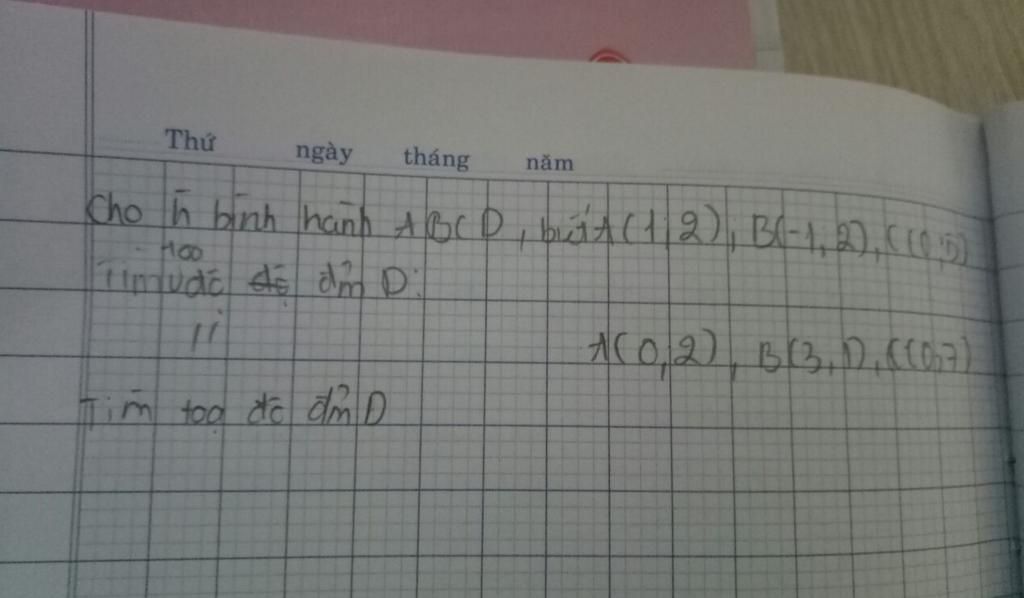 Thứ ngày tháng năm
Cho h̄ bình hành ABCD, biết A(1,2), B(-1,2), C(0,5)
toạ
Tìm độ điểm D.
11 A(0,2), B(3,1), C(0,7)
Tìm toạ độ điểm D